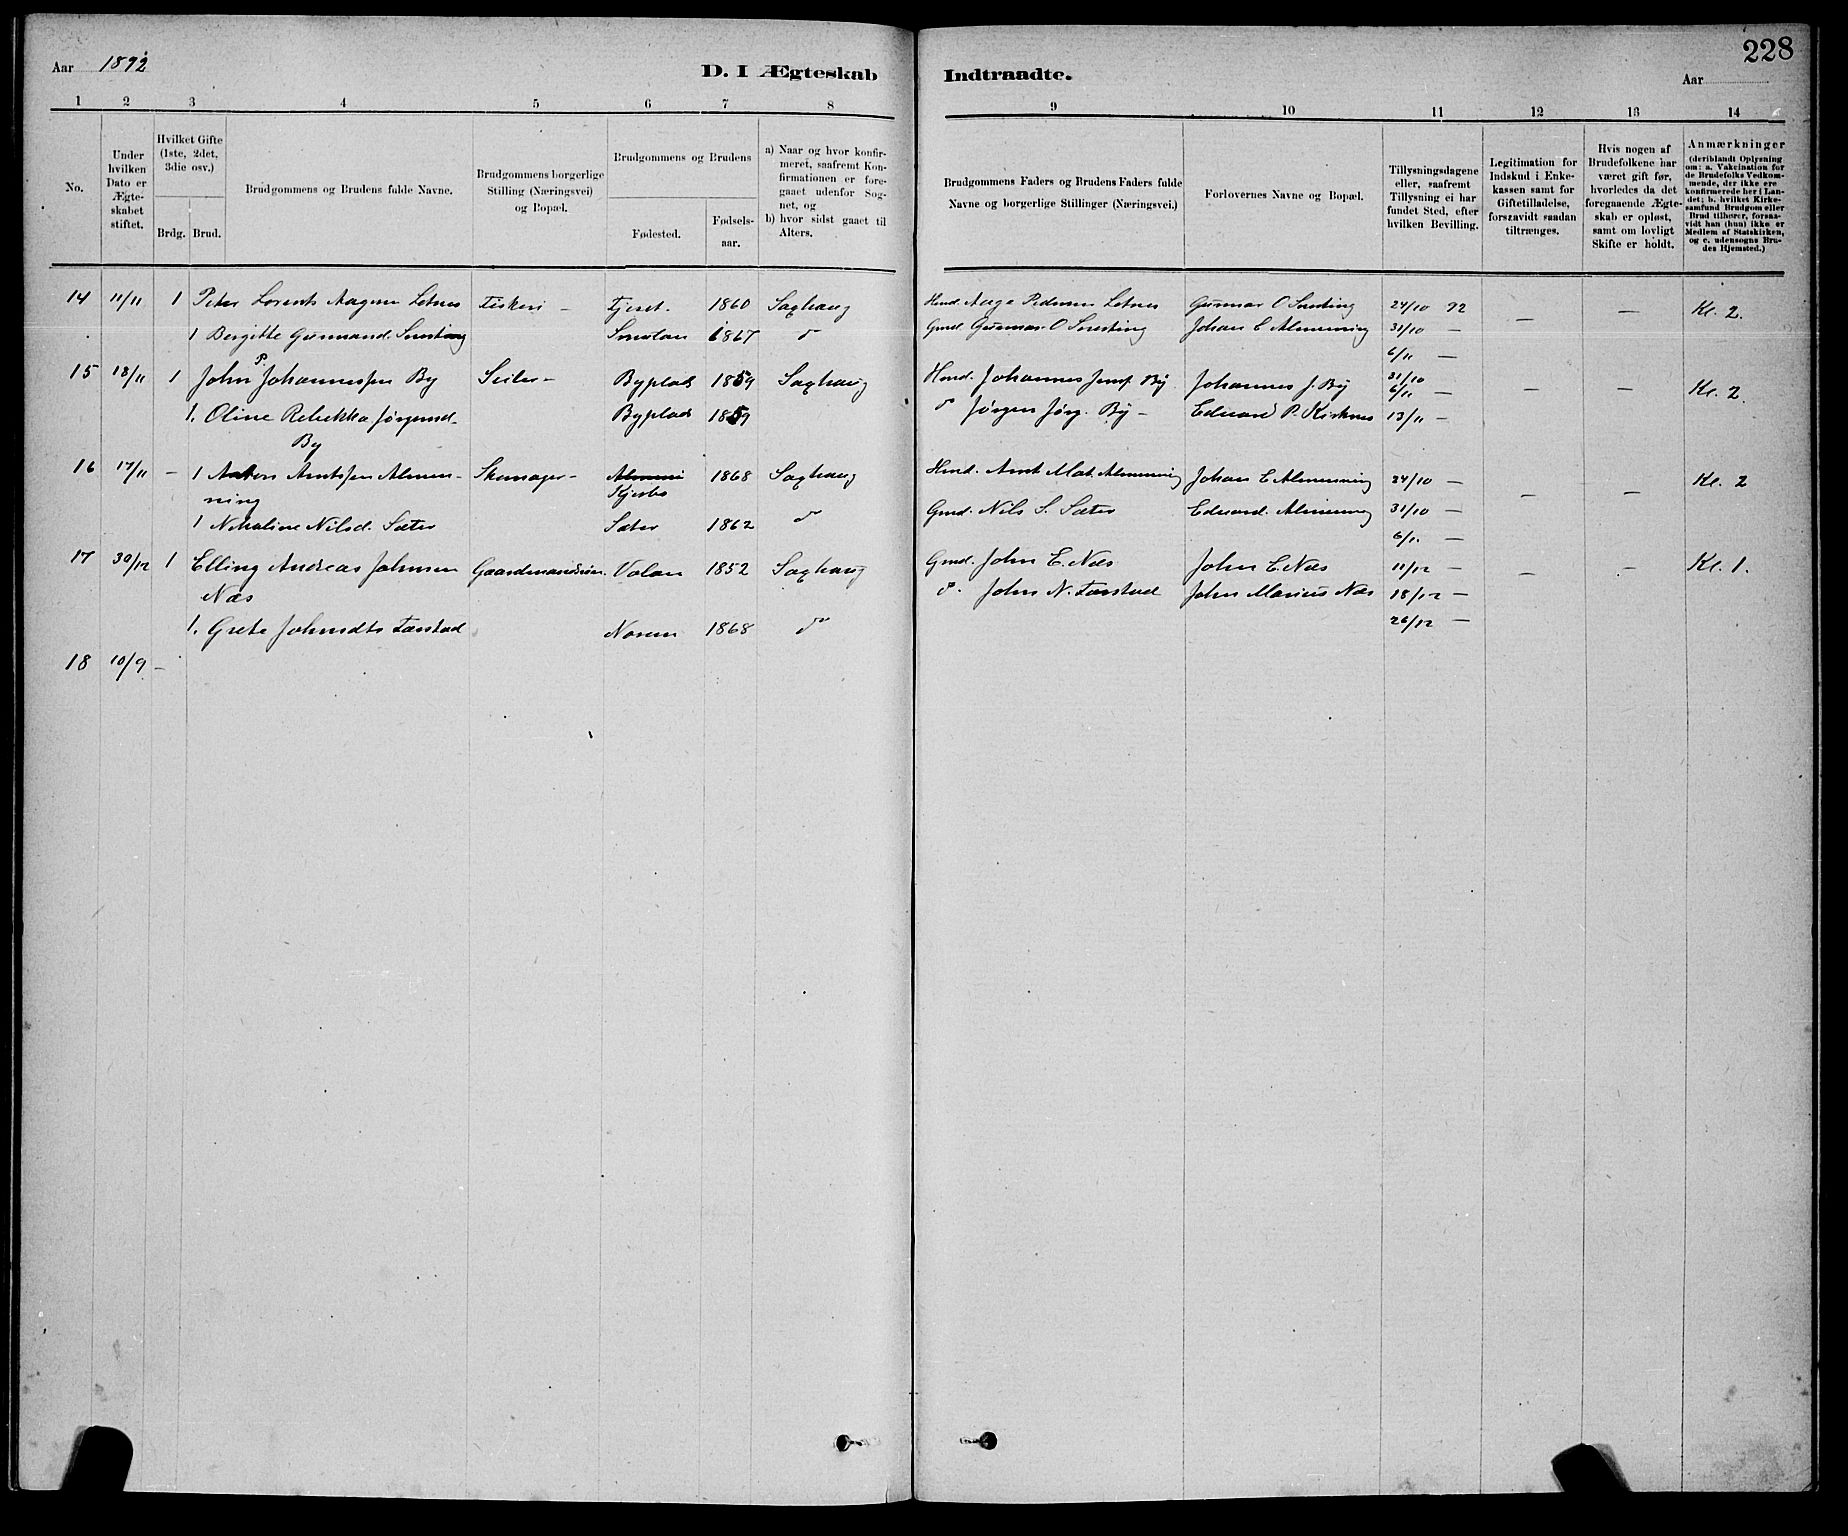 Aar 1892
D. I Ægteskab
1 2 3 4 5 6 7 8
No.
Under hvilken Dato er Ægte-skabet stiftet.
Hvilket Gifte (1ste, 2det, 3die osv.)
Brdg. Brud.
Brudgommens og Brudens fulde Navne.
Brudgommens borgerlige Stilling (Næringsvei) og Bopæl.
Brudgommens og Brudens
Fødested.
Fødsels-aar.
a) Naar og hvor konfir-meret, saafremt Kon-firmationen er fore-gaaet udenfor Sog-net, og
b) hvor sidst gaaet til Alters.
14 11/11 1 Peter Lorents Aagesen Letnes Fiskeri - Tjeset. 1860 Saghaug
1 Bergitte Gunnarsd. Snusting 1867
15 18/11 1 John P Johannessen By Seiler - Byplads 1859 Saghaug
1. Oline Rebekka Jørgensd. Byplads 1859
By
16 17/11 - 1 Arntssen Almen- Skomager - 1868 Saghaug
ning
1 Nikoline Nilsd. Sæter Sæter 1862
17 30/12 1 Elling Andreas Johnsen Gaardmandssøn Volan 1852 Saghaug
Næs
1. Grete Johnsdt. Tarstad Norem 1868
18 10/9 -
228
Indtraadte.
Aar
9 10 11 12 13 14
Brudgommens Faders og Brudens Faders fulde Navne og borgerlige Stillinger (Næringsvei.)
Forlovernes Navne og Bopæl.
Tillysningsdagene eller, saafremt Tillysning ei har fundet Sted, efter hvilken Bevilling.
Legitimation for Indskud i Enke-kassen samt for Giftetilladelse, forsaavidt saadan tiltrænges.
Hvis nogen af Brudefolkene har været gift før, hvorledes da det foregaaende Ægte-skab er opløst, samt om lovligt Skifte er holdt.
Anmærkninger (deriblandt Oplysning om: a. Vakcination for de Brudefolks Vedkom-mende, der ikke ere konfirmerede her i Lan-det; b. hvilket Kirke-samfund Brudgom eller Brud tilhører, forsaa-vidt han (hun) ikke er Medlem af Statskirken, og c. udensogns Bru-des Hjemsted.)
Hmd. Aage Pedersen Letnes Gunnar O Snusting 24/10 92 - - Kl. 2.
Gmd. Gunnar O Snusting Johan E Almenning 31/10 -
6/11 -
Hmd. Johannes By Johannes J. By 31/10 6/11 - - - Kl. 2.
Jørgen Jørg. By - Eduard P. Kirknes 13/11 -
Hmd. Arnt Mat. Almenning Johan E Almenning 24/10 - - - Kl. 2
Gmd. Nils S. Sæter Eduard Almenning 31/10 -
6/11 -
Gmd. John E. Næs John E Næs 11/12 - - - Kl. 1.
John N. Tarstad John Marius Næs 18/12 -
26/12 -